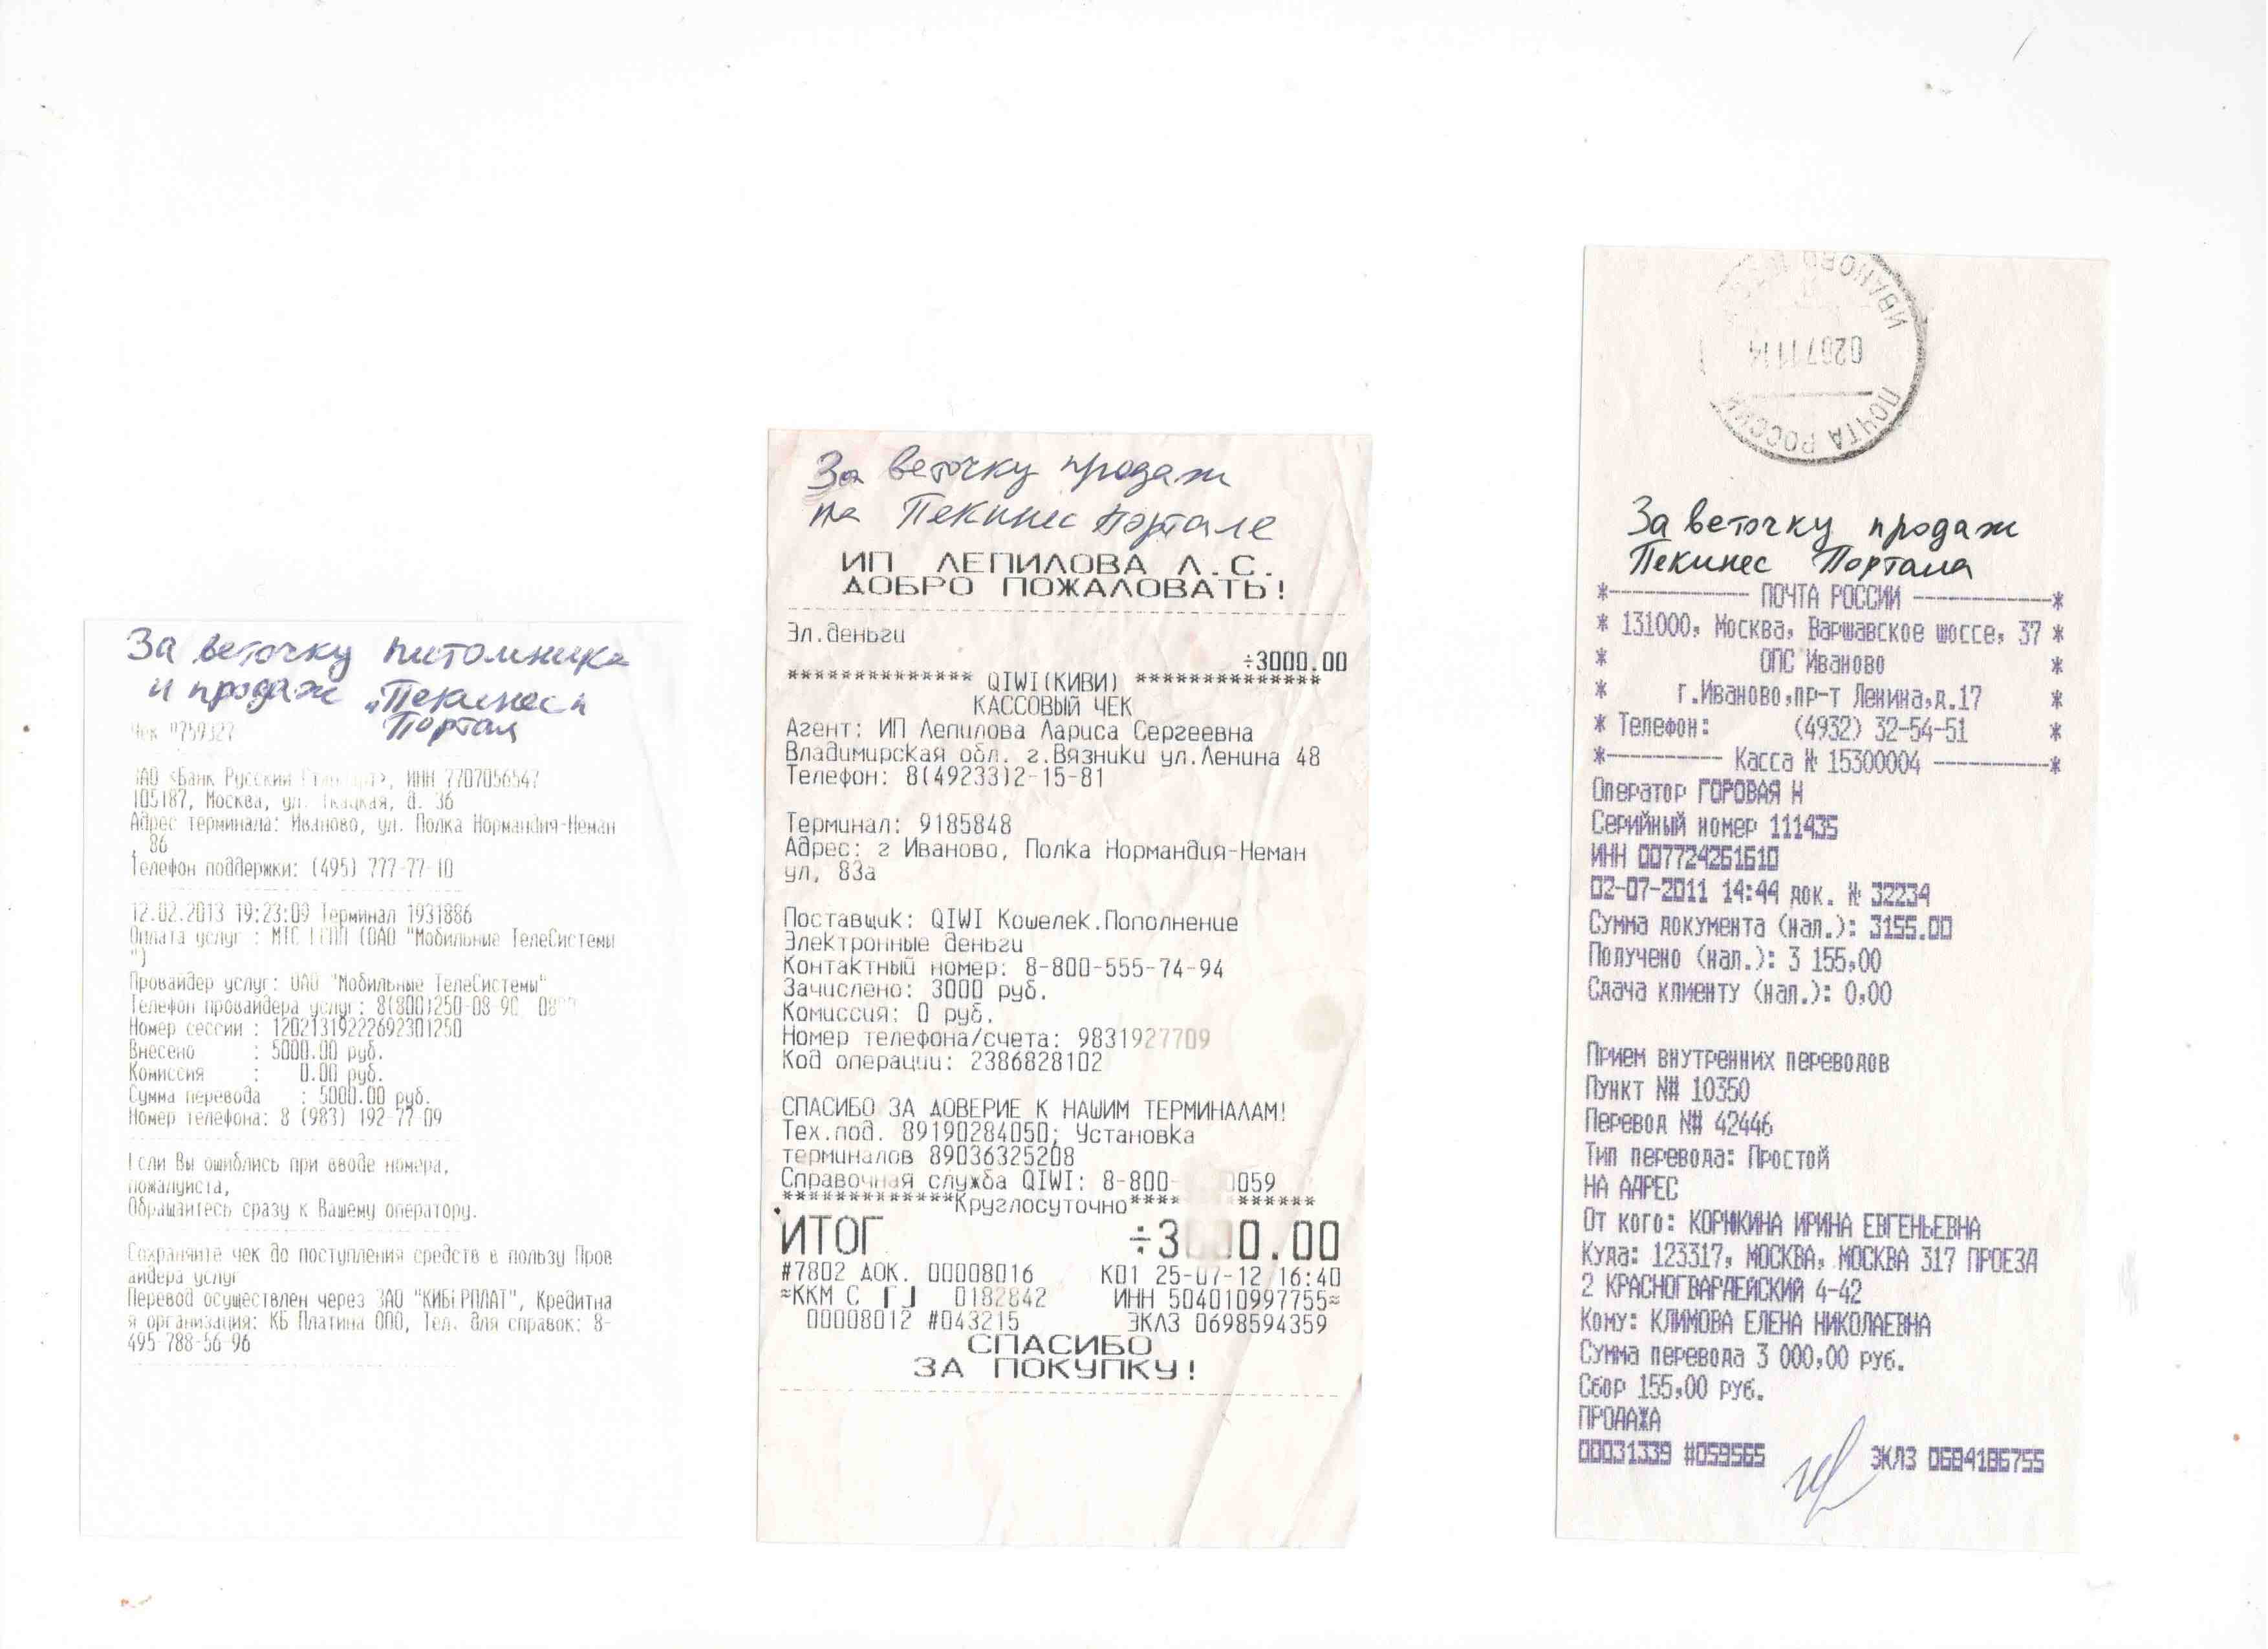 За веточку питомника
и продаж „Пекинес
Портал
Чек
ЗАО «Банк Русский Стандарт», ИНН 7707056547
105187, Москва, ул. Ткацкая, д. 36
Адрес терминала: Иваново, ул. Полка Нормандия-Неман
, 86
Телефон поддержки: (495) 777-77-10
12.02.2013 19:23:09 Терминал 1931886
Оплата услуг : МТС (ОАО "Мобильные ТелеСистемы
")
Провайдер услуг: ОАО "Мобильные ТелеСистемы"
Телефон провайдера услуг: 8(800)250-08-90
Номер сессии : 12021319222692301250
Внесено : 5000.00 руб.
Комиссия : 0.00 руб.
Сумма перевода : 5000.00 руб.
Номер телефона: 8 (983) 192-77-09
Если Вы ошиблись при вводе номера,
пожалуйста,
Обращайтесь сразу к Вашему оператору.
Сохраняйте чек до поступления средств в пользу Пров
айдера услуг
Перевод осуществлен через ЗАО "КИБЕРПЛАТ", Кредитна
я организация: КБ Платина ООО, Тел. для справок: 8-
495-788-56-96
За веточку продаж
на Пекинес Портале
ИП ЛЕПИЛОВА Л.С.
ДОБРО ПОЖАЛОВАТЬ!
Эл.деньги
÷3000.00
************** QIWI(КИВИ) **************
КАССОВЫЙ ЧЕК
Агент: ИП Лепилова Лариса Сергеевна
Владимирская обл. г.Вязники ул.Ленина 48
Телефон: 8(49233)2-15-81
Терминал: 9185848
Адрес: г Иваново, Полка Нормандия-Неман
ул, 83а
Поставщик: QIWI Кошелек.Пополнение
Электронные деньги
Контактный номер: 8-800-555-74-94
Зачислено: 3000 руб.
Комиссия: 0 руб.
Номер телефона/счета: 9831927709
Код операции: 2386828102
СПАСИБО ЗА ДОВЕРИЕ К НАШИМ ТЕРМИНАЛАМ!
Тех.под. 89190284050; Установка
терминалов 89036325208
Справочная служба QIWI: 8-800- 059
*************Круглосуточно**** ******
ИТОГ ÷3000.00
#7802 ДОК. 00008016 К01 25-07-12 16:40
≈ККМ С 0182842 ИНН 504010997755≈
00008012 #043215 ЭКЛЗ 0698594359
СПАСИБО
ЗА ПОКУПКУ!
ИВАНОВО
020711 14
ПОЧТА РОССИИ
За веточку продаж
Пекинес Портала
*----------- ПОЧТА РОССИИ -----------*
* 131000, Москва, Варшавское шоссе, 37 *
* ОПС Иваново *
* г.Иваново,пр-т Ленина,д.17 *
* Телефон: (4932) 32-54-51 *
*--------- Касса № 15300004 ---------*
Оператор ГОРОВАЯ Н
Серийный номер 111435
ИНН 007724261610
02-07-2011 14:44 док. № 32234
Сумма документа (нал.): 3155.00
Получено (нал.): 3 155,00
Сдача клиенту (нал.): 0,00
Прием внутренних переводов
Пункт N# 10350
Перевод N# 42446
Тип перевода: Простой
НА АДРЕС
От кого: КОРЖКИНА ИРИНА ЕВГЕНЬЕВНА
Куда: 123317, МОСКВА, МОСКВА 317 ПРОЕЗД
2 КРАСНОГВАРДЕЙСКИЙ 4-42
Кому: КЛИМОВА ЕЛЕНА НИКОЛАЕВНА
Сумма перевода 3 000,00 руб.
Сбор 155,00 руб.
ПРОДАЖА
00031339 #059565 ЭКЛЗ 0684186755